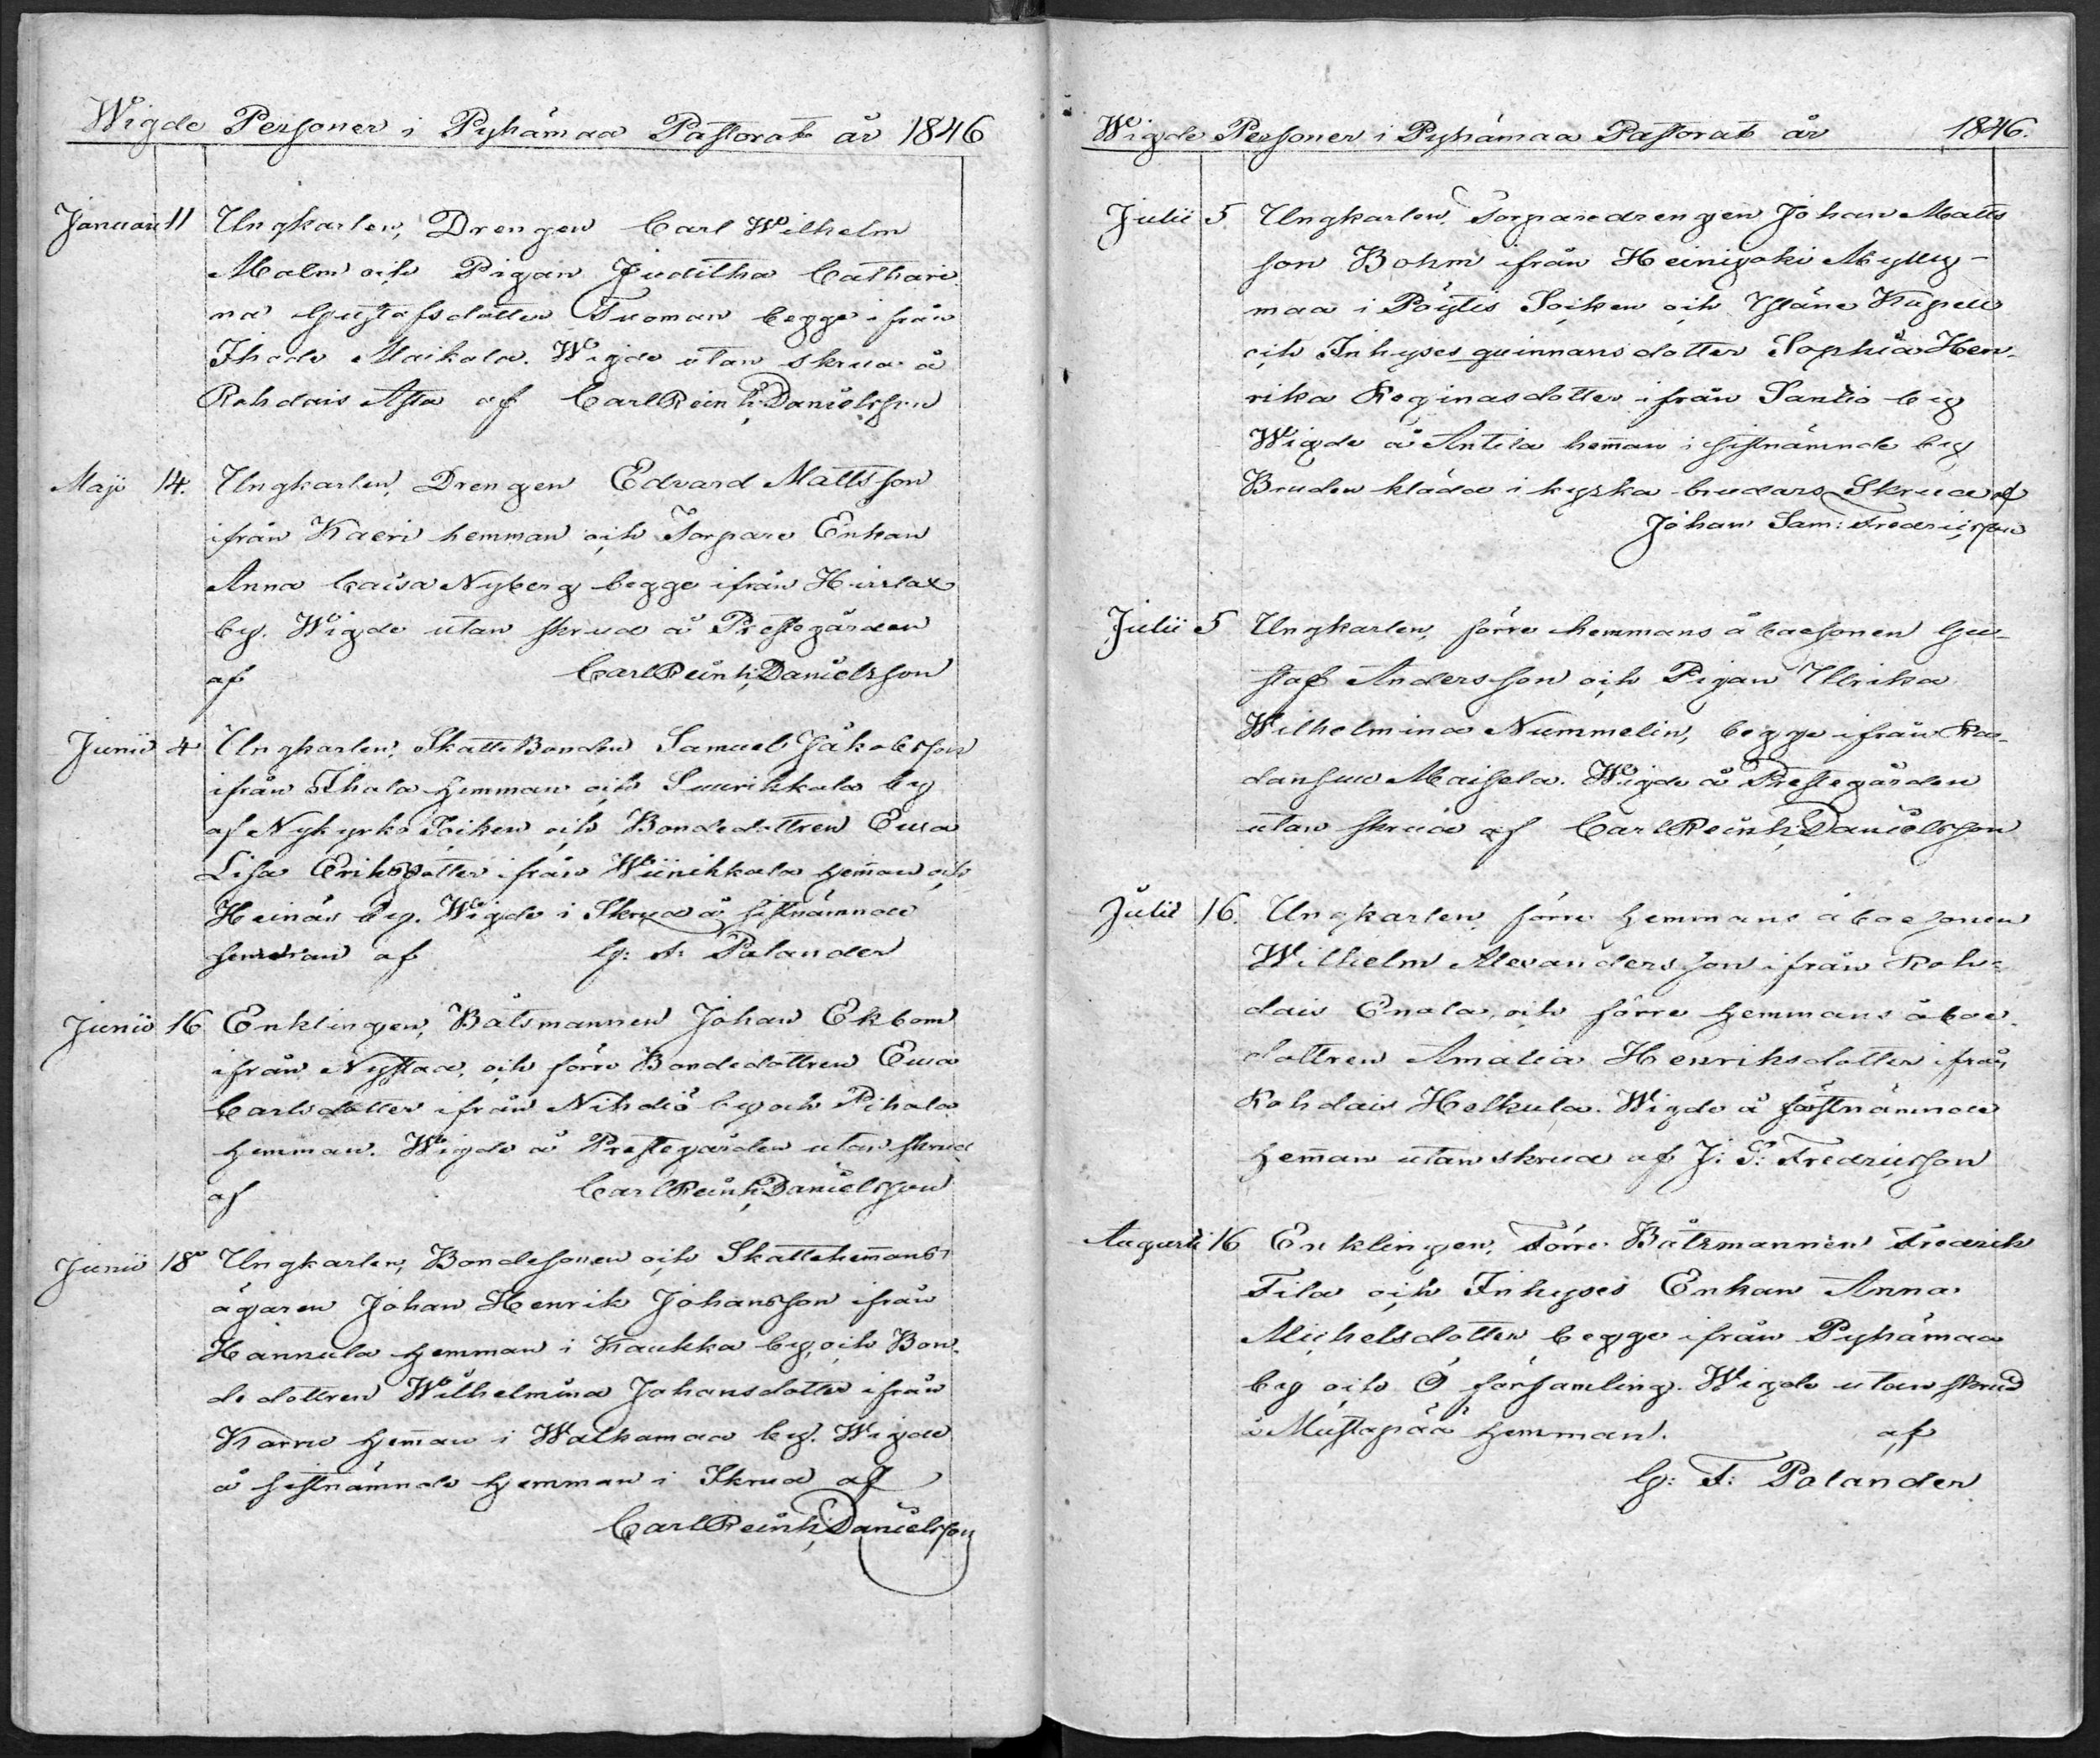 Wigde Personer i Pyhämaa Pastorat år 1846
Januari 11 Ungkarlen, Drengen Carl Wilhelm
Malm och Pigan Juditha Cathari
na Gustafsdotter Tuoman begge ifrån
Ihode Maikola. Wigde utan skrud å
Rohdais Asta af Carl Reinh: Danielsson
Maji 14. Ungkarlen, Drengen Edvard Mattsson
ifrån Kaeri hemman och Torpare Enkan
Anna Caisa Nyberg begge ifrån Hirslax
by. Wigde utan skrud å Prestegården
af Carl Reinh: Danielsson
Junii 4 Ungkarlen, Skattebonden Samuel Jakobsson
ifrån Ihala hemman och Suurikkala by
af Nykyrko Socken och Bondedottren Eva
Lisa Eriksdotter ifrån Wiinikkala heman och
Heinäs by. Wigde i Skrud å sistnämnde
hemman af G: F: Palander
Junii 16 Enklingen, Båtsmannen Johan Ekbom
ifrån Nystad, och förre Bondedottren Eva
Carlsdotter ifrån Nihdiö by och Pihala
hemman. Wigde å Prestegården utan skrud
af Carl Reinh: Danielsson
Junii 18 Ungkarlen, Bondesonen och Skattehemans
ägaren Johan Henrik Johansson ifrån
Hannula hemman i Kaukka by, och Bon-
dedottren Wilhelmina Johansdotter ifrån
Karru heman i Walkamaa by. Wigde
å sistnämnde hemman i Skrud af
Carl Reinh: Danielsson
Wigde Personer i Pyhämaa Pastorat år 1846.
Julii 5. Ungkarlen, Torparedrengen Johan Matts
son Bohm ifrån Heinijoki Mylly-
maa i Pöytis Socken och Yläne Kapell
och Inhyses quinnans dotter Sophia Hen-
rika Reginasdotter ifrån Santio by
Wigde å Antila heman i sistnämnde by
Bruden klädd i kyska brudars Skrud af
Johan Sam: Fredricsson
Julii 5 Ungkarlen, förre hemmans åboesonen Gu-
staf Andersson och Pigan Ulrika
Wilhelmina Nummelin, begge ifrån Ra-
dansuu Maisela. Wigde å Prestegården
utan skrud af Carl Reinh: Danielsson
Julii 16. Ungkarlen, förre hemmans åboesonen
Wilhelm Alexandersson ifrån Roh-
dais Enola, och förre hemmans åboe-
dottren Amalia Henriksdotter ifrån
Rohdais Holkula. Wigde å förstnämnde
heman utan skrud af J: S: Fredricsson
Augusti 16 Enklingen, Förre Båtsmannen Fredrik
Fila och Inhyses Enkan Anna
Michelsdotter, begge ifrån Pyhämaa
by och Ö församling. Wigde utan skrud
å Mustapää hemman. af
G: F: Palander